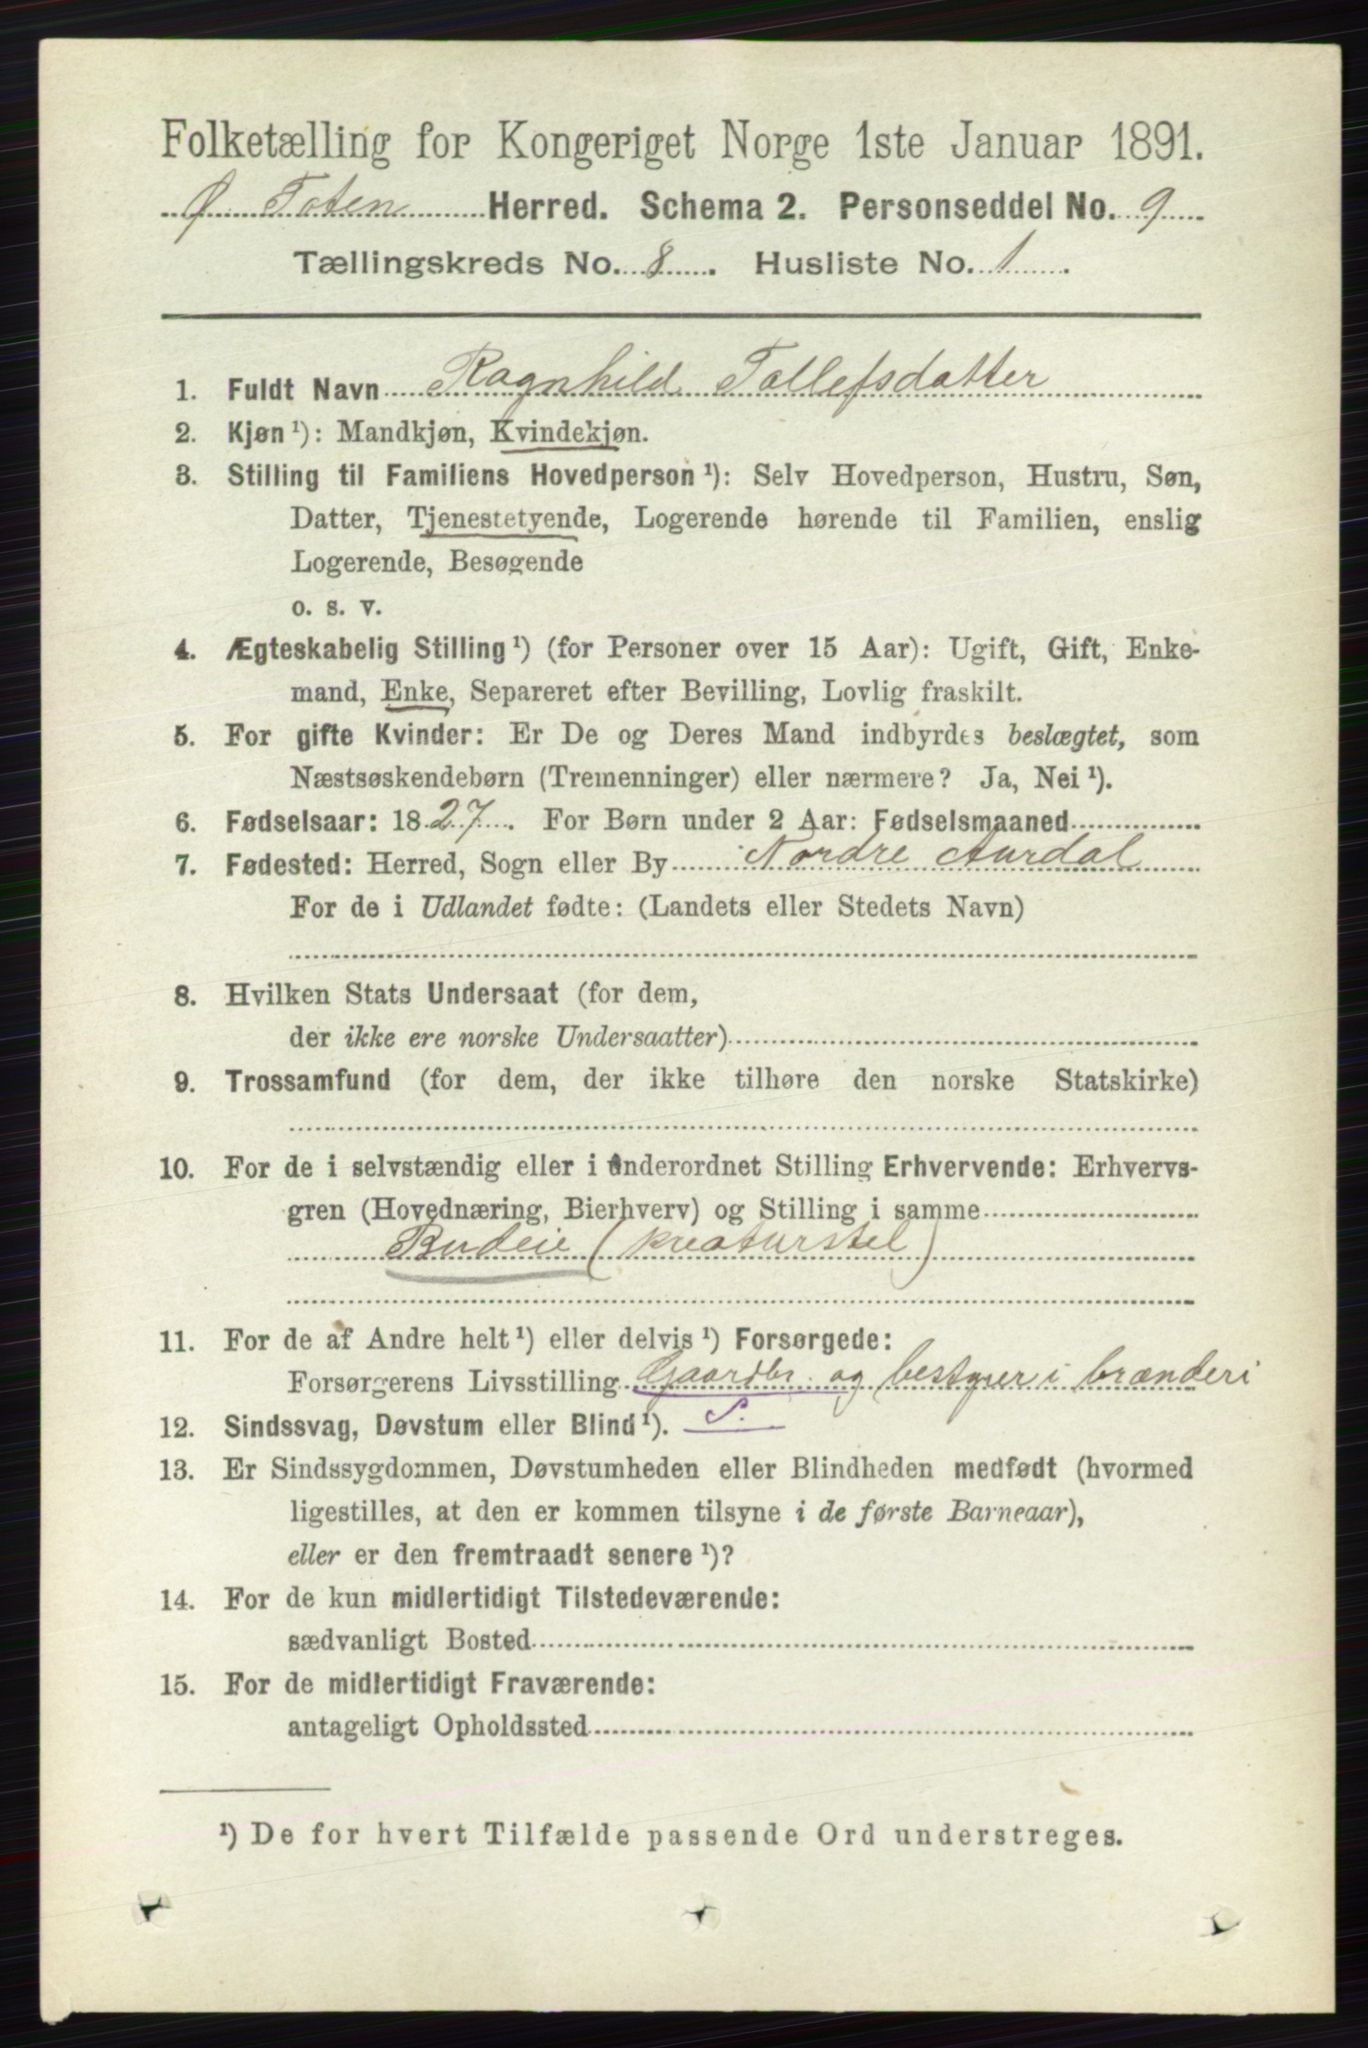 Folketælling for Kongeriget Norge 1ste Januar 1891.
Ø. Toten Herred. Schema 2. Personseddel No. 9
Tællingskreds No. 8. Husliste No. 1.
1. Fuldt Navn Ragnhild Tollefsdatter
2. Kjøn ¹): Mandkjøn, Kvindekjøn.
3. Stilling til Familiens Hovedperson ¹): Selv Hovedperson, Hustru, Søn,
Datter, Tjenestetyende, Logerende hørende til Familien, enslig
Logerende, Besøgende
o. s. v.
4. Ægteskabelig Stilling ¹) (for Personer over 15 Aar): Ugift, Gift, Enke-
mand, Enke, Separeret efter Bevilling, Lovlig fraskilt.
5. For gifte Kvinder: Er De og Deres Mand indbyrdes beslægtet, som
Næstsøskendebørn (Tremenninger) eller nærmere? Ja, Nei ¹).
6. Fødselsaar: 1827. For Børn under 2 Aar: Fødselsmaaned
7. Fødested: Herred, Sogn eller By Nordre Aurdal
For de i Udlandet fødte: (Landets eller Stedets Navn)
8. Hvilken Stats Undersaat (for dem,
der ikke ere norske Undersaatter)
9. Trossamfund (for dem, der ikke tilhøre den norske Statskirke)
10. For de i selvstændig eller i underordnet Stilling Erhvervende: Erhvervs-
gren (Hovednæring, Bierhverv) og Stilling i samme
Budeie (kreaturstel)
11. For de af Andre helt ¹) eller delvis ¹) Forsørgede:
Forsørgerens Livsstilling Gaardbr. og bestyrer i brænderi
12. Sindssvag, Døvstum eller Blind ¹). S.
13. Er Sindssygdommen, Døvstumheden eller Blindheden medfødt (hvormed
ligestilles, at den er kommen tilsyne i de første Barneaar),
eller er den fremtraadt senere ¹)?
14. For de kun midlertidigt Tilstedeværende:
sædvanligt Bosted
15. For de midlertidigt Fraværende:
antageligt Opholdssted
¹) De for hvert Tilfælde passende Ord understreges.